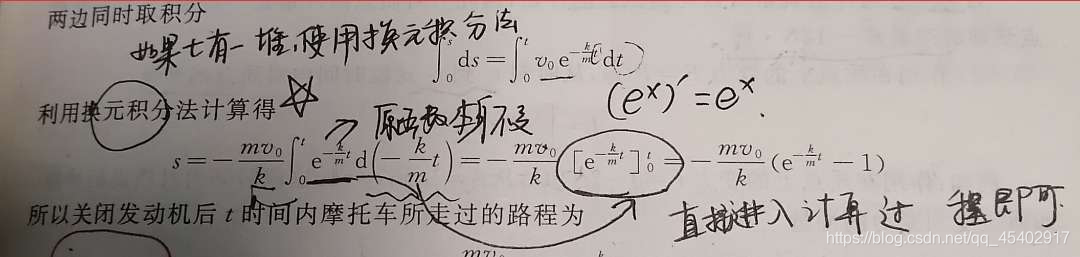 两边同时取积分
如果七有一堆,使用换元换分法
∫₀ˢ ds = ∫₀ᵗ v₀ e^{-\frac{k}{m}t} dt
利用换元积分法计算得
(eˣ)′ = eˣ.
原函数本身不变
s = -\frac{mv₀}{k} ∫₀ᵗ e^{-\frac{k}{m}t} d(-\frac{k}{m}t) = -\frac{mv₀}{k} [e^{-\frac{k}{m}t}]₀ᵗ = -\frac{mv₀}{k} (e^{-\frac{k}{m}t} - 1)
所以关闭发动机后 t 时间内摩托车所走过的路程为
直接进入计算过 程即可
https://blog.csdn.net/qq_45402917